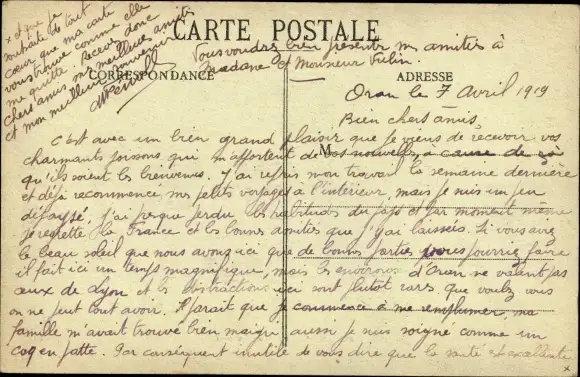 CARTE POSTALE
Vous voudrez bien présenter mes amitiés à
Madame et Monsieur
CORRESPONDANCE
ADRESSE
Oran le 7 Avril 1919
Bien chers amis,
C'est avec un bien grand plaisir que je viens de recevoir vos
charmants poissons qui m'apportent de vos nouvelles, à cause de ça
M
qu'ils soient les bienvenus. J'ai repris mon travail la semaine dernière
et déjà recommencé mes petits voyages à l'intérieur, mais je suis un peu
dépaysé. J'ai presque perdu les habitudes du pays et par moment même
je regrette la France et les bonnes amitiés que j'y ai laissées. Si vous avez
le beau soleil que nous avons ici que de bonnes parties vous pourriez faire
il fait ici un temps magnifique, mais les environs d'Oran ne valent pas
ceux de Lyon et les distractions ici sont plutôt rares que voulez vous
on ne peut tout avoir. Il paraît que je commence à me remplumer, ma
famille m'avait trouvé bien maigri aussi je suis soigné comme un
coq en patte. Par conséquent inutile de vous dire que la santé est excellente
x
x et que je
souhaite de tout
cœur que ma carte
vous trouve comme elle
me quitte. Recevez donc
chers amis mes meilleures amitiés
et mon meilleur souvenir